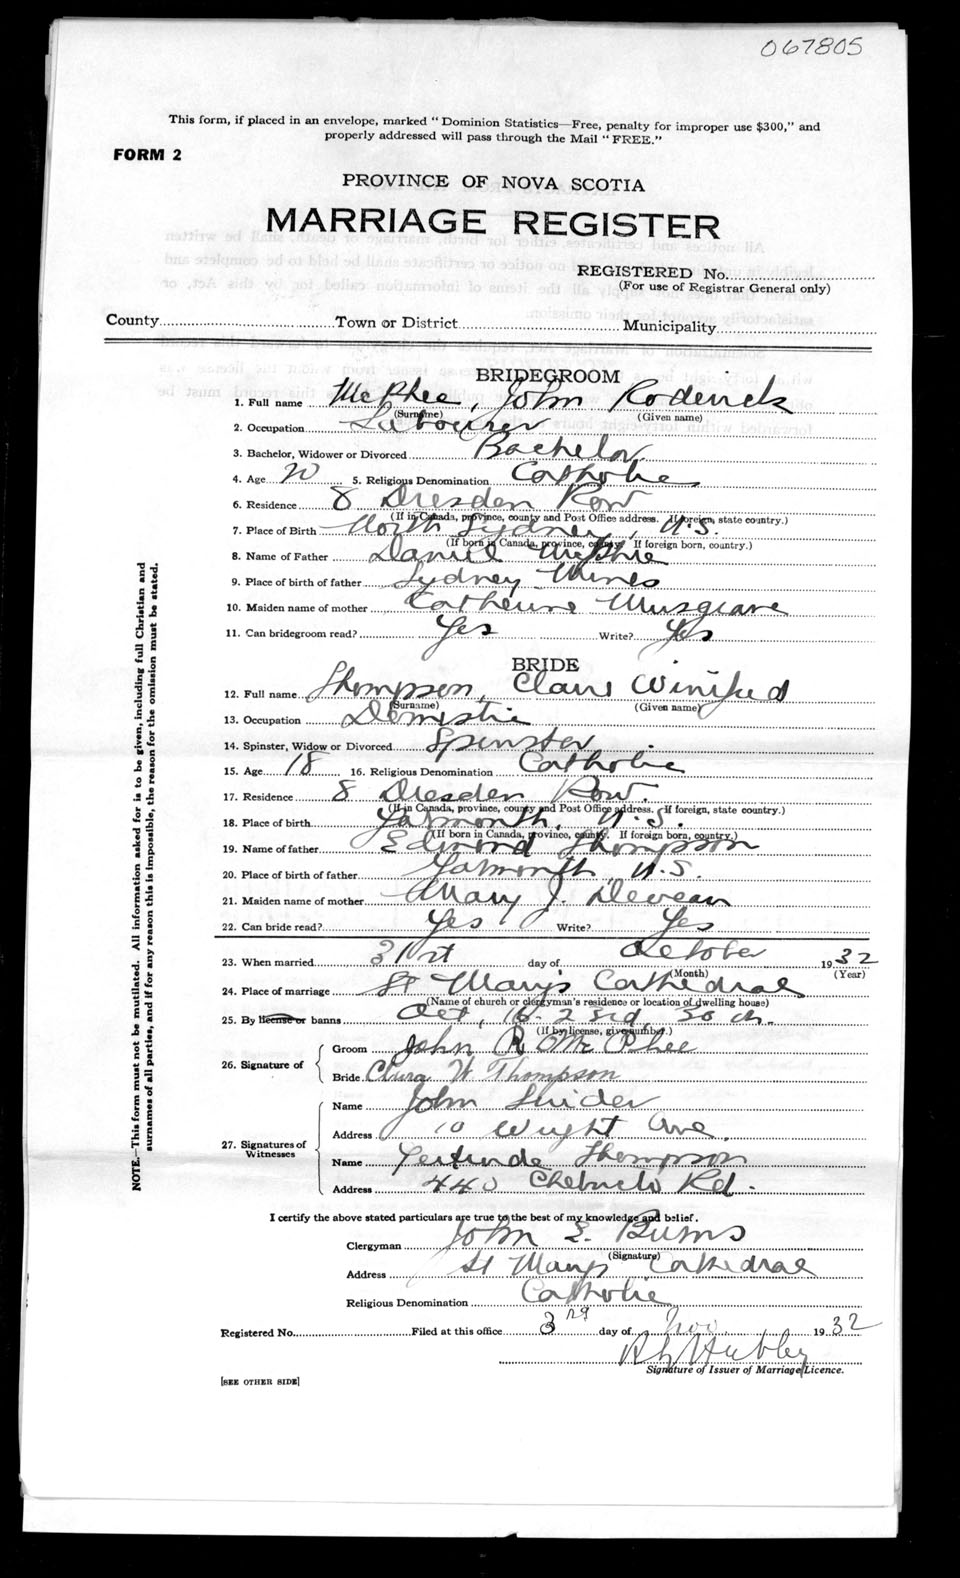 067805
This form, if placed in an envelope, marked "Dominion Statistics—Free, penalty for improper use $300," and
properly addressed will pass through the Mail "FREE."
FORM 2
PROVINCE OF NOVA SCOTIA
MARRIAGE REGISTER
REGISTERED No.
(For use of Registrar General only)
County Town or District Municipality
BRIDEGROOM
1. Full name McPhee, John Roderick
(Surname) (Given name)
2. Occupation Labourer
3. Bachelor, Widower or Divorced Bachelor
4. Age 20 5. Religious Denomination Catholic
6. Residence 8 Dresden Row
(If in Canada, province, county and Post Office address. If foreign, state country.)
7. Place of Birth North Sydney, N.S.
(If born in Canada, province, county. If foreign born, country.)
8. Name of Father Daniel McPhie
9. Place of birth of father Sydney Mines
10. Maiden name of mother Catherine Musgrave
11. Can bridegroom read? Yes Write? Yes
BRIDE
12. Full name Thompson, Claire Winifred
(Surname) (Given name)
13. Occupation Domestic
14. Spinster, Widow or Divorced Spinster
15. Age 18 16. Religious Denomination Catholic
17. Residence 8 Dresden Row.
(If in Canada, province, county and Post Office address. If foreign, state country.)
18. Place of birth Yarmouth, N.S.
(If born in Canada, province, county. If foreign born, country.)
19. Name of father Edmond Thompson
20. Place of birth of father Yarmouth, N.S.
21. Maiden name of mother Mary J. Deveau
22. Can bride read? Yes Write? Yes
23. When married 31st day of October 1932
(Month) (Year)
24. Place of marriage St Mary's Cathedral
(Name of church or clergyman's residence or location of dwelling house)
25. By license or banns Oct, 16- 23rd, 30th.
(If by license, give number.)
26. Signature of Groom John R McPhee
Bride Clara W Thompson
27. Signatures of Witnesses
Name John Snider
Address 10 Wright Ave.
Name Gertrude Thompson
Address 440 Chebucto Rd.
I certify the above stated particulars are true to the best of my knowledge and belief.
Clergyman John E. Burns
(Signature)
Address St Marys Cathedral
Religious Denomination Catholic
Registered No. Filed at this office 3rd day of Nov 1932
Hubley
Signature of Issuer of Marriage Licence.
[SEE OTHER SIDE]
NOTE.—This form must not be mutilated. All information asked for is to be given, including full Christian and
surnames of all parties, and if for any reason this is impossible, the reason for the omission must be stated.